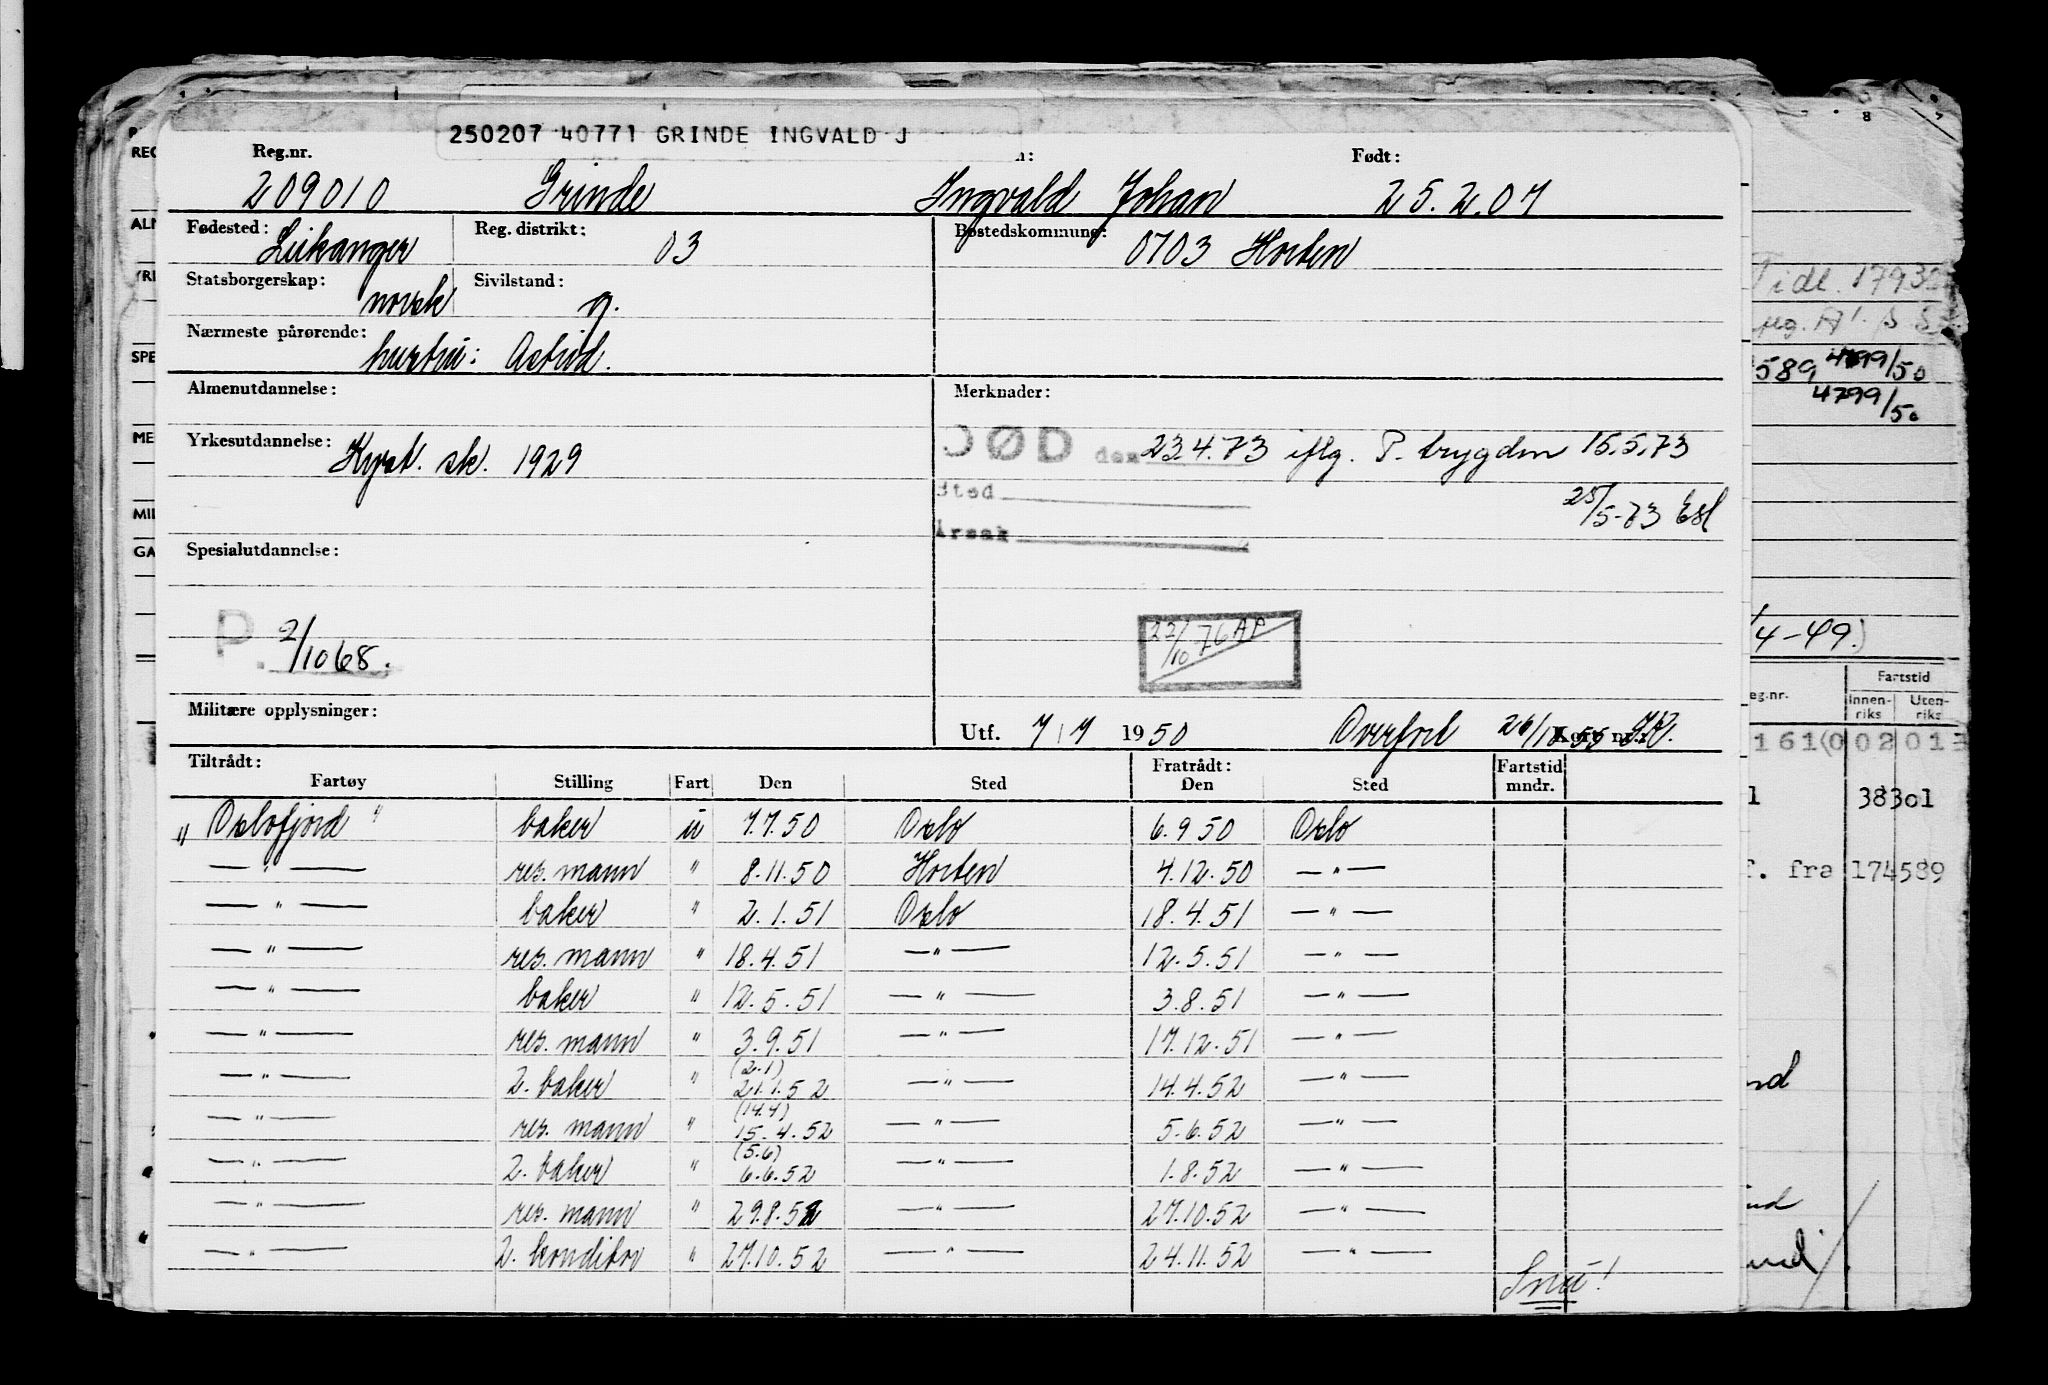 250207 40771 GRINDE INGVALD J
Reg.nr. n: Født:
209010 Grinde Ingvald Johan 25.2.07
Fødested: Leikanger Reg. distrikt: 03 Bostedskommune: 0703 Horten
Statsborgerskap: norsk Sivilstand: g.
Nærmeste pårørende: hustru: Astrid.
Almenutdannelse: Merknader:
Yrkesutdannelse: Kyst. sk. 1929
DØD den 23.4.73 iflg. P. trygden 15.5.73
Sted
25/5-73 Esl
Årsak
Spesialutdannelse:
P. 2/10 68.
22/10 76 AP
Militære opplysninger:
Utf. 7/7 1950 Overført 26/10 55 Kort nr.
Tiltrådt: Fratrådt: Fartstid
Fartøy Stilling Fart Den Sted Den Sted mndr.
"Oslofjord" baker u 7.7.50 Oslo 6.9 50 Oslo
— " — res. mann " 8.11.50 Horten 4.12.50 — " —
— " — baker " 2.1.51 Oslo 18.4.51 — " —
— " — res. mann " 18.4.51 — " — 12.5.51 — " —
— " — baker " 12.5.51 — " — 3.8.51 — " —
— " — res. mann " 3.9.51 — " — 17.12.51 — " —
(2.1)
— " — 2. baker " 21.1.52 — " — 14.4.52 — " —
(14.4)
— " — res. mann " 15.4.52 — " — 5.6.52 — " —
(5.6)
— " — 2. baker " 6.6.52 — " — 1.8.52 — " —
— " — res. mann " 29.8.52 — " — 27.10.52 — " —
— " — 2. konditor " 27.10.52 — " — 24.11.52 — " —
Snu!
REG
ALM
YRI
SPE
ME
MIL
GA
Tidl. 17932
589, 4799/50
4799/50
/4-49)
eg.nr. Fartstid
Innen-riks Uten-riks
161(0 02 01
1 38301
f. fra 174589